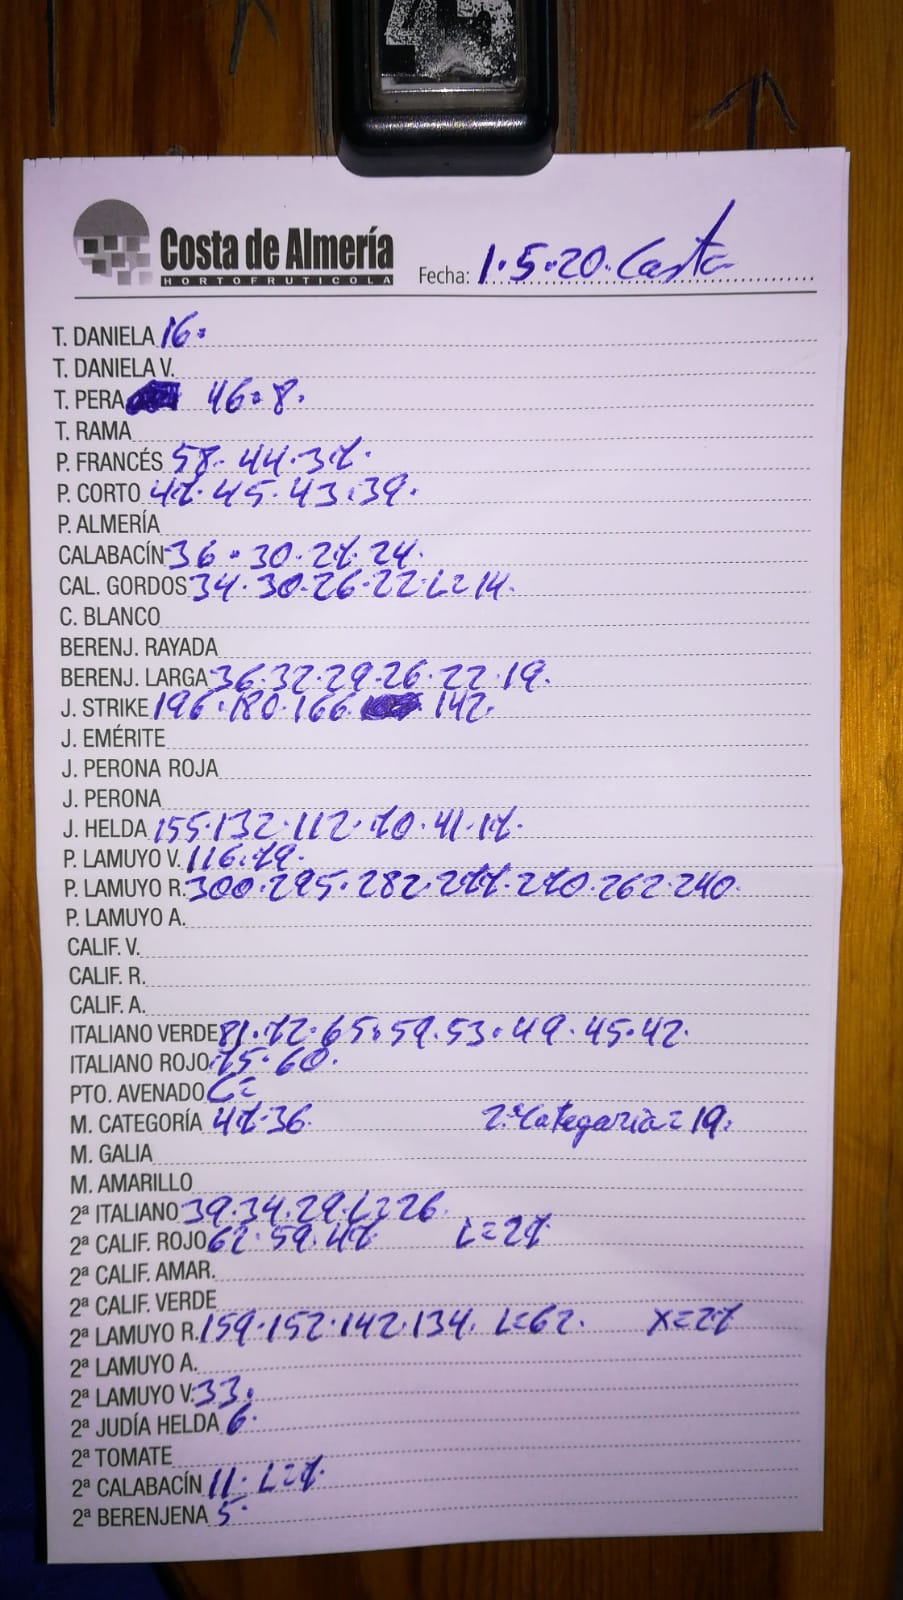 Costa de Almería
HORTOFRUTICOLA
Fecha: 1.5.20. Costa
T. DANIELA 16.
T. DANIELA V.
T. PERA 46.8.
T. RAMA
P. FRANCÉS 58. 44.37.
P. CORTO 47.45.43.39.
P. ALMERÍA
CALABACÍN 36.30.27.24.
CAL. GORDOS 34.30.26.22.L=14.
C. BLANCO
BERENJ. RAYADA
BERENJ. LARGA 36.32.29.26.22.19.
J. STRIKE 196.180.166 142.
J. EMÉRITE
J. PERONA ROJA
J. PERONA
J. HELDA 155.132.112.70.41.17.
P. LAMUYO V. 116.79.
P. LAMUYO R. 300.295.282.277.270.262.240.
P. LAMUYO A.
CALIF. V.
CALIF. R.
CALIF. A.
ITALIANO VERDE 81.72.65.59.53.49.45.42.
ITALIANO ROJO 75.60.
PTO. AVENADO C=
M. CATEGORÍA 47.36. 2.ª Categoria=19.
M. GALIA
M. AMARILLO
2ª ITALIANO 39.34.29.L=26.
2ª CALIF. ROJO 62.59.47 L=27
2ª CALIF. AMAR.
2ª CALIF. VERDE
2ª LAMUYO R. 159.152.142.134. L=62. X=27
2ª LAMUYO A.
2ª LAMUYO V. 33.
2ª JUDÍA HELDA 6.
2ª TOMATE
2ª CALABACÍN 11. L=7.
2ª BERENJENA 5.